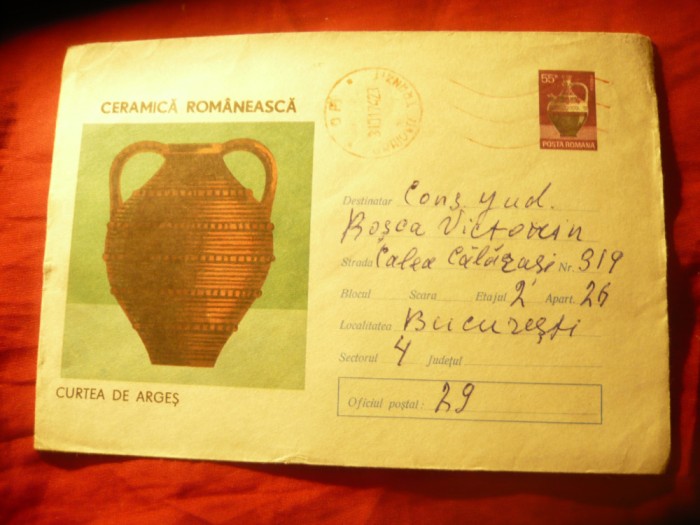 CERAMICĂ ROMÂNEASCĂ
CURTEA DE ARGEȘ
55
POSTA ROMANA
Destinatar Cons. jud.
Roșca Victorin
Strada Calea Călărași Nr. 319
Blocul Scara Etajul 2 Apart. 26
Localitatea București
Sectorul 4 Județul
Oficiul poștal: 29